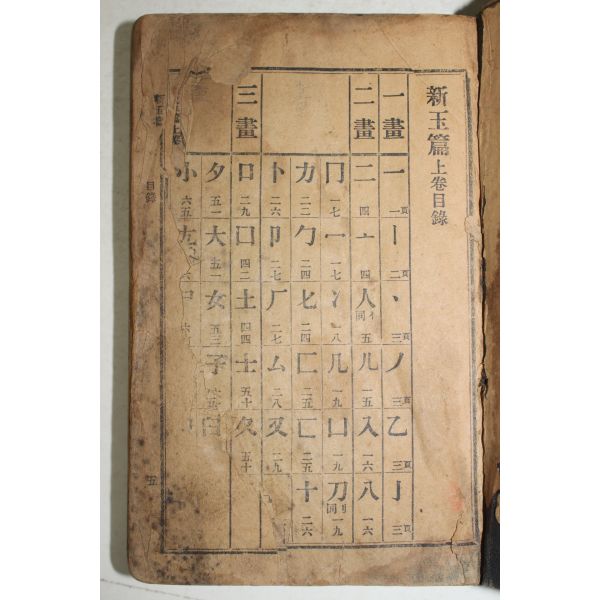 新玉篇上卷目錄
一畫 一 一頁 丨 二頁 丶 三頁 丿 三頁 乙 三頁 亅 三頁
二畫 二 四 亠 四 人 亻同 五 儿 一五 入 一六 八 一六
冂 一七 冖 一七 冫 一八 几 一九 凵 一九 刀 刂同 一九
力 二二 勹 二四 匕 二四 匚 二五 匸 二五 十 二六
卜 二六 卩 二七 厂 二七 厶 二八 又 二九
三畫 口 二九 囗 四二 土 四四 士 五十 夂 五十
夕 五一 大 五一 女 五三 子
小 六五 尢
新玉篇上卷
目錄
五